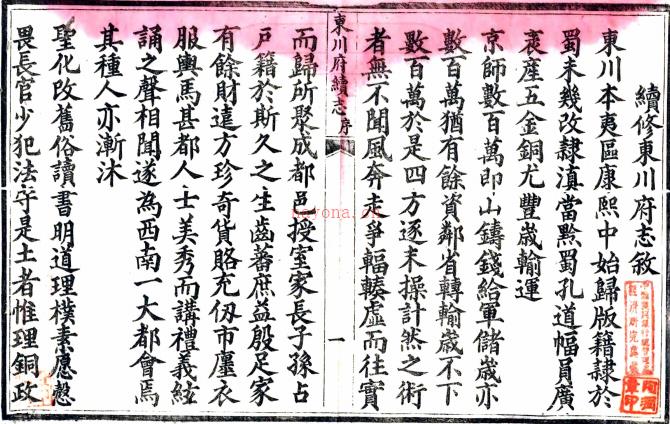 續修東川府志敘
東川本夷區康熙中始歸版籍隸於
蜀未幾改隸滇當黔蜀孔道幅員廣
袤產五金銅尤豐歲輸運
京師數百萬即山鑄錢給軍儲歲亦
數百萬猶有餘資鄰省轉輸歲不下
數百萬於是四方逐末操計然之術
者無不聞風奔走爭輻輳虛而往實
東川府續志 序
一
而歸所聚成都邑授室家長子孫占
戶籍於斯久之生齒蕃庶益殷足家
有餘財遠方珍奇貨賂充仞市廛衣
服輿馬甚都人士美秀而講禮義絃
誦之聲相聞遂為西南一大都會焉
其種人亦漸沐
聖化改舊俗讀書明道理樸素愿愨
畏長官少犯法守是土者惟理銅政
nayona.cn